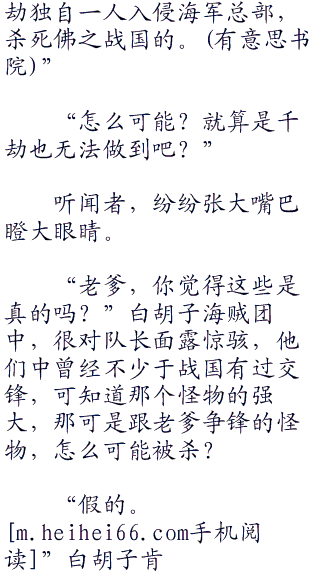 劫独自一人入侵海军总部，
杀死佛之战国的。(有意思书
院)”
“怎么可能？就算是千
劫也无法做到吧？”
听闻者，纷纷张大嘴巴
瞪大眼睛。
“老爹，你觉得这些是
真的吗？”白胡子海贼团
中，很对队长面露惊骇，他
们中曾经不少于战国有过交
锋，可知道那个怪物的强
大，那可是跟老爹争锋的怪
物，怎么可能被杀？
“假的。
[m.heihei66.com手机阅
读]”白胡子肯